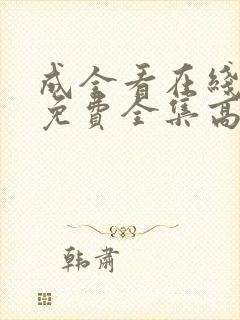 成全看在线
免費全集高
韩肃